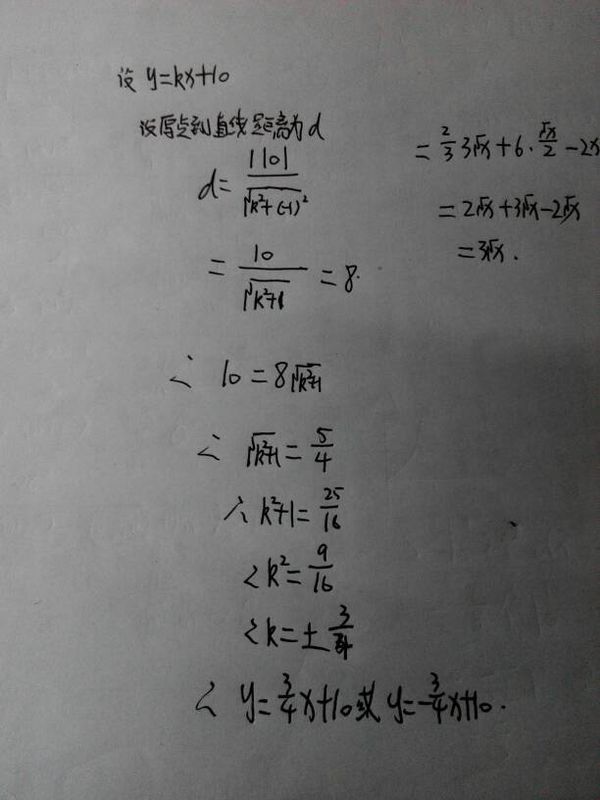 设 y=kx+10
设原点到直线距离为d
d=|10|/√(k²+(-1)²)
=10/√(k²+1)=8.
∴ 10=8√(k²+1)
∴ √(k²+1)=5/4
∴ k²+1=25/16
∴ k²=9/16
∴ k=±3/4
∴ y=3/4x+10或y=-3/4x+10.
=2/3 3√x+6·√x/2-2x
=2√x+3√x-2√x
=3√x.